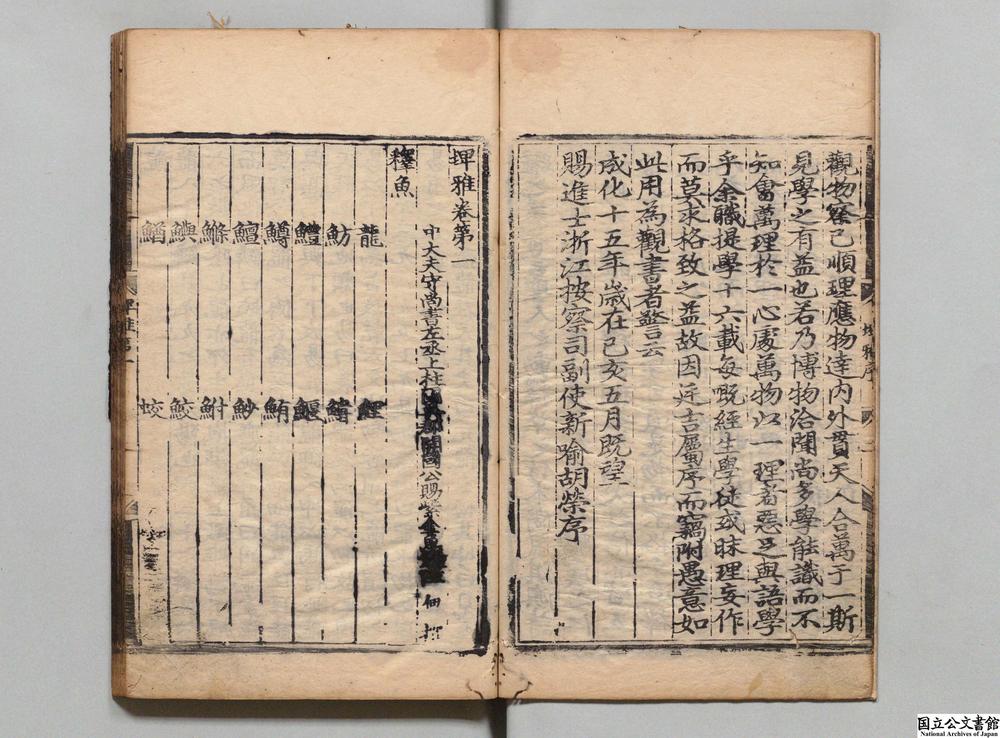 觀物察己順理應物達内外貫天人合萬于一斯
見學之有益也若乃博物洽聞尚多學能識而不
知會萬理於一心處萬物以一理者惡足與語學
乎余職提學十六載每嘅經生學徒或昧理妄作
而莫求格致之益故因廷吉屬序而竊附愚意如
此用為觀書者警言云
成化十五年歲在己亥五月既望
賜進士浙江按察司副使新喻胡榮序
埤雅序
埤雅卷第一
中大夫守尚書左丞上柱國公賜紫金佃撰
釋魚
龍 鯉
魴 鱒
鱧 鰋
鱒 鮪
鱣 魦
鰷 鮒
鱮 鮫
鰌 蛟
埤雅第一
国立公文書館
National Archives of Japan